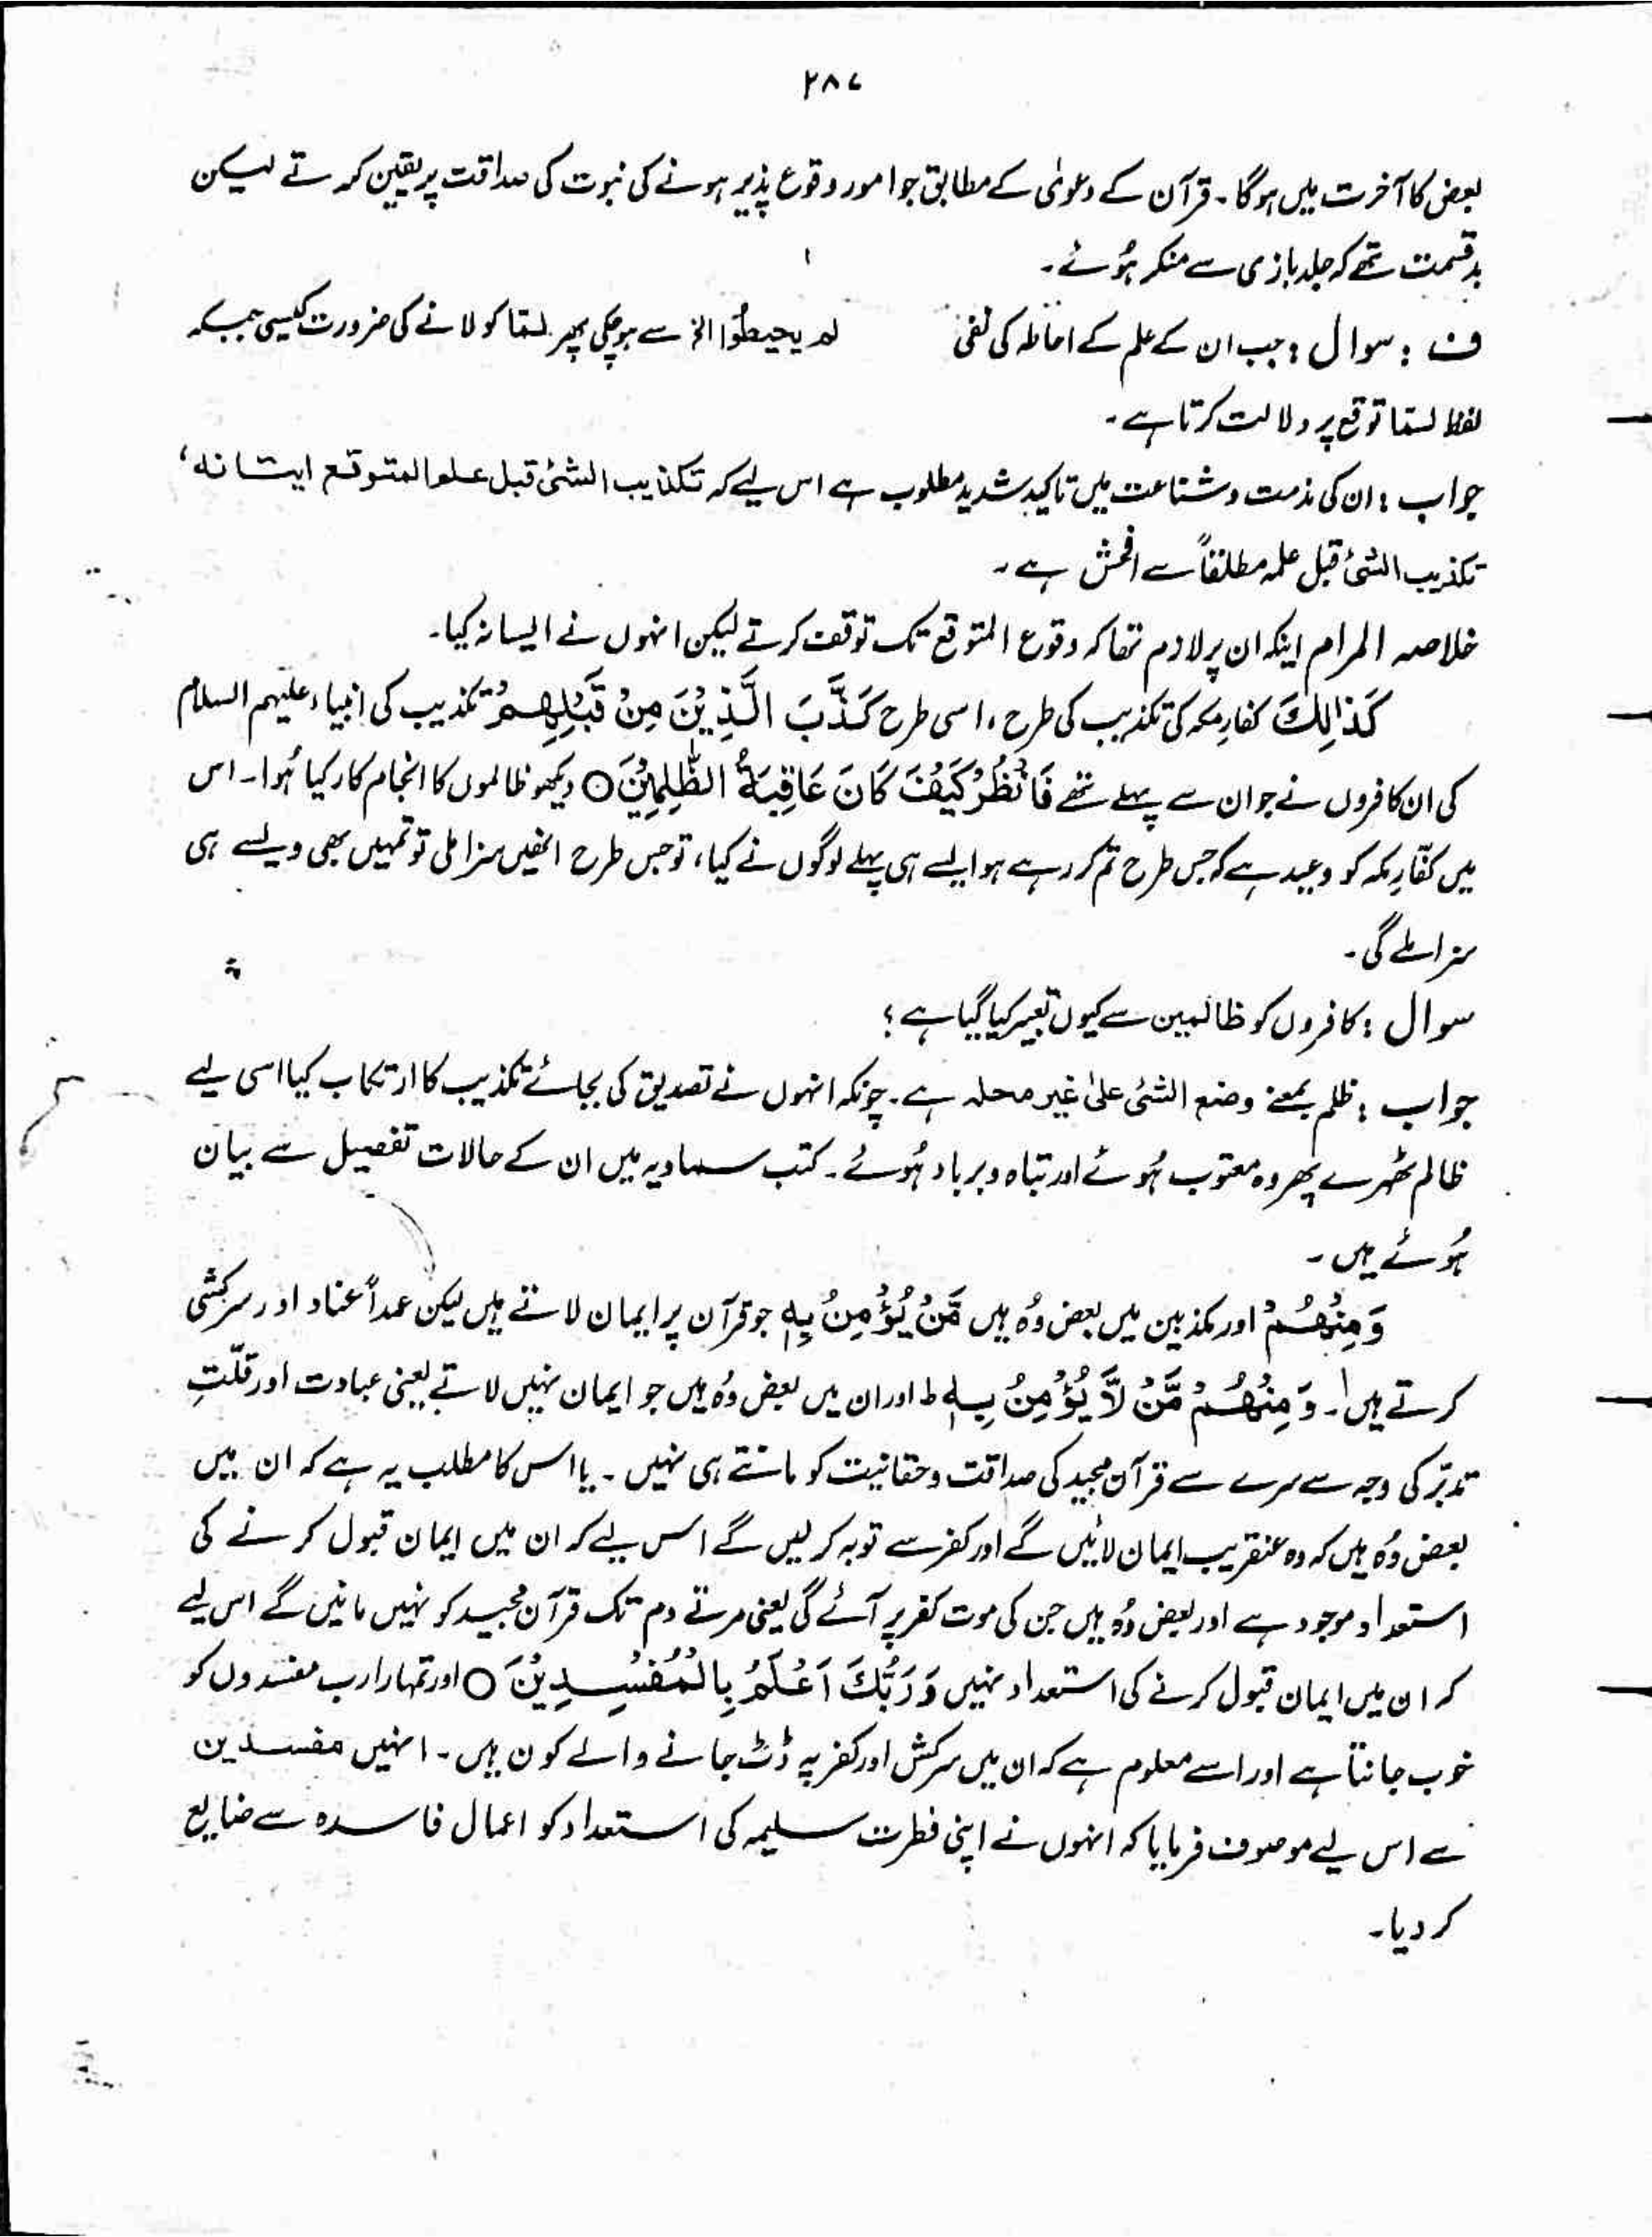 ۲۸۷
بعض کا آخرت میں ہوگا۔ قرآن کے دعوٰی کے مطابق جو امور وقوع پذیر ہونے کی نبوت کی صداقت پر یقین کرتے لیکن
بدقسمت تھے کہ جلد بازی سے منکر ہُوئے۔
ف : سوال : جب ان کے علم کے احاطہ کی نفی لم یحیطُوا الخ سے ہوچکی پھر لمّا کو لانے کی ضرورت کیسی جبکہ
لفظ لمّا توقع پر دلالت کرتا ہے۔
جواب : ان کی مذمت و شناعت میں تاکید شدید مطلوب ہے اس لیے کہ تکذیب الشئ قبل علمو المتوقع ایتانہ،
تکذیب الشئ قبل علمہ مطلقاً سے افحش ہے۔
خلاصہ المرام اینکہ ان پر لازم تھا کہ وقوع المتوقع تک توقف کرتے لیکن انہوں نے ایسا نہ کیا۔
کَذٰالِکَ کفارِ مکہ کی تکذیب کی طرح، اسی طرح کَذَّبَ الَّذِیْنَ مِنْ قَبْلِھِمْ تکذیب کی انبیاء علیہم السلام
کی ان کافروں نے جو ان سے پہلے تھے فَانْظُرْ کَیْفَ کَانَ عَاقِبَۃُ الظّٰلِمِیْنَ○ دیکھو ظالموں کا انجام کار کیا ہُوا۔ اس
میں کفّارِ مکہ کو وعید ہے کہ جس طرح تم کر رہے ہو ایسے ہی پہلے لوگوں نے کیا، تو جس طرح انھیں سزا ملی تو تمہیں بھی ویسے ہی
سزا ملے گی۔
سوال : کافروں کو ظالمین سے کیوں تعبیر کیا گیا ہے ؟
جواب : ظلم بمعنے وضع الشئی علیٰ غیر محلہ ہے۔ چونکہ انہوں نے تصدیق کی بجائے تکذیب کا ارتکاب کیا اسی لیے
ظالم ٹھہرے پھر وہ معتوب ہُوئے اور تباہ و برباد ہُوئے۔ کتب سماویہ میں ان کے حالات تفصیل سے بیان
ہُوئے ہیں۔
وَمِنْھُمْ اور مکذبین میں بعض وُہ ہیں مَّنْ یُؤْمِنُ بِہٖ جو قرآن پر ایمان لاتے ہیں لیکن عمداً عناد اور سرکشی
کرتے ہیں۔ وَمِنْھُمْ مَّنْ لَّا یُؤْمِنُ بِہٖ ط اور ان میں بعض وُہ ہیں جو ایمان نہیں لاتے یعنی عبادت اور قلّتِ
تدبّر کی وجہ سے سرے سے قرآن مجید کی صداقت و حقانیت کو مانتے ہی نہیں۔ یا اس کا مطلب یہ ہے کہ ان میں
بعض وُہ ہیں کہ وہ عنقریب ایمان لائیں گے اور کفر سے توبہ کرلیں گے اس لیے کہ ان میں ایمان قبول کرنے کی
استعداد موجود ہے اور بعض وُہ ہیں جن کی موت کفر پر آئے گی یعنی مرتے دم تک قرآن مجید کو نہیں مانیں گے اس لیے
کہ ان میں ایمان قبول کرنے کی استعداد نہیں وَرَبُّکَ اَعْلَمُ بِالْمُفْسِدِیْنَ○ اور تمہارا رب مفسدوں کو
خوب جانتا ہے اور اسے معلوم ہے کہ ان میں سرکش اور کفر پہ ڈٹ جانے والے کون ہیں۔ انہیں مفسدین
سے اس لیے موصوف فرمایا کہ انہوں نے اپنی فطرت سلیمہ کی استعداد کو اعمال فاسدہ سے ضایع
کر دیا۔